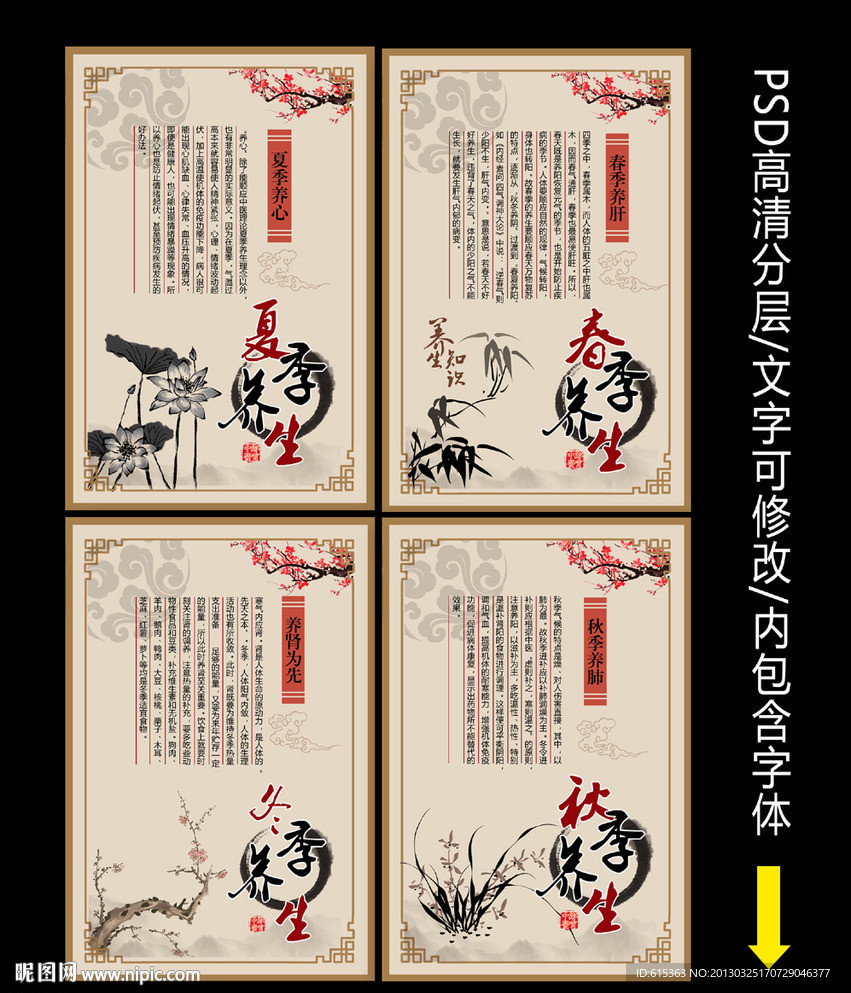 夏季养心
养心，除了能顺应中医理论夏季养生理念以外，
也有非常明显的实际意义。因为在夏季，气温过
高本来就容易使人精神紧张，心理、情绪波动起
伏，加上高温使机体的免疫功能下降，病人很可
能出现心肌缺血、心律失常、血压升高的情况，
即使是健康人，也可能出现情绪暴躁等现象。所
以养心也是防止情绪起伏，甚至预防疾病发生的
好办法。
夏季养生
春季养肝
四季之中，春季属木，而人体的五脏之中肝也属
木，因而春气通肝，春季也最易使肝旺。所以，
春天既是养阳恢复元气的季节，也是开始防止疾
病的季节，人体要顺应自然的规律，气候转阳，
身体也转阳。故春季的养生要顺应春天万物复苏
的特点，逐渐从，秋冬养阴，过渡到，春夏养阳。
如《内经·素问·四气调神大论》中说：“逆春气则
少阳不生，肝气内变。”意思是说，若春天不好
好养生，违背了春天之气，体内的少阳之气不能
生长，就要发生肝气内郁的病变。
养生知识
春季养生
养肾为先
寒气内应肾。肾是人体生命的原动力，是人体的，
先天之本。，冬季，人体阳气内敛，人体的生理
活动也有所收敛。此时，肾既要为维持冬季热量
支出准备 足够的能量，又要为来年贮存一定
的能量，所以此时养肾至关重要。饮食上就要时
刻关注肾的调养，注意热量的补充，要多吃些动
物性食品和豆类，补充维生素和无机盐。狗肉、
羊肉、鹅肉、鸭肉、大豆、核桃、栗子、木耳、
芝麻、红薯、萝卜等均是冬季适宜食物。
冬季养生
秋季养肺
秋季气候的特点是燥，对人伤害直接，其中，以
肺为最。故秋季进补应以补肺润燥为主。冬令进
补则应根据中医，虚则补之，寒则温之。的原则，
注意养阳，以滋补为主，多吃温性、热性、特别
是温补肾阳的食物进行调理。这样便可平衡阴阳，
调和气血，提高机体的耐寒能力，增强机体免疫
功能，促进病体康复，显示出药物所不能替代的
效果。
秋季养生
PSD高清分层/文字可修改/内包含字体
昵图网 www.nipic.com
ID:615363 NO:20130325170729046377